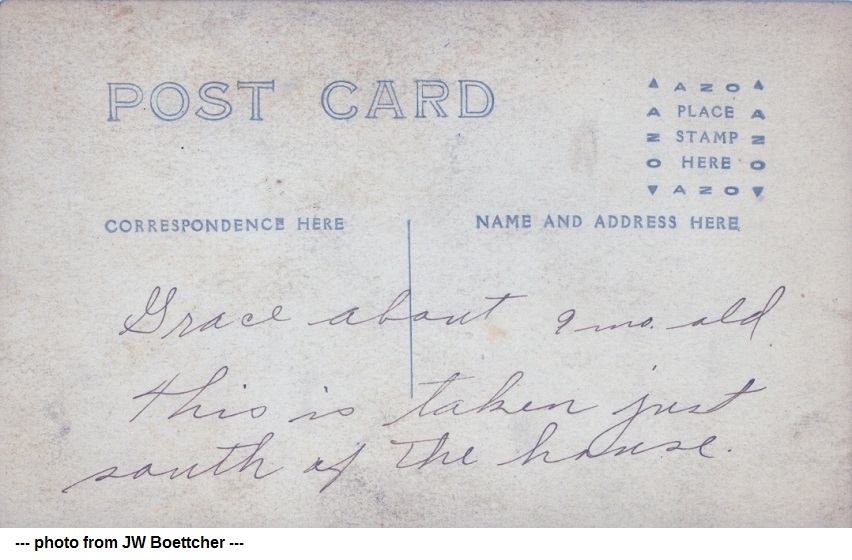 POST CARD
▲ AZO ▲
A PLACE A
Z STAMP Z
O HERE O
▼ AZO ▼
CORRESPONDENCE HERE
NAME AND ADDRESS HERE
Grace about 9 mo. old
this is taken just
south of the house.
--- photo from JW Boettcher ---